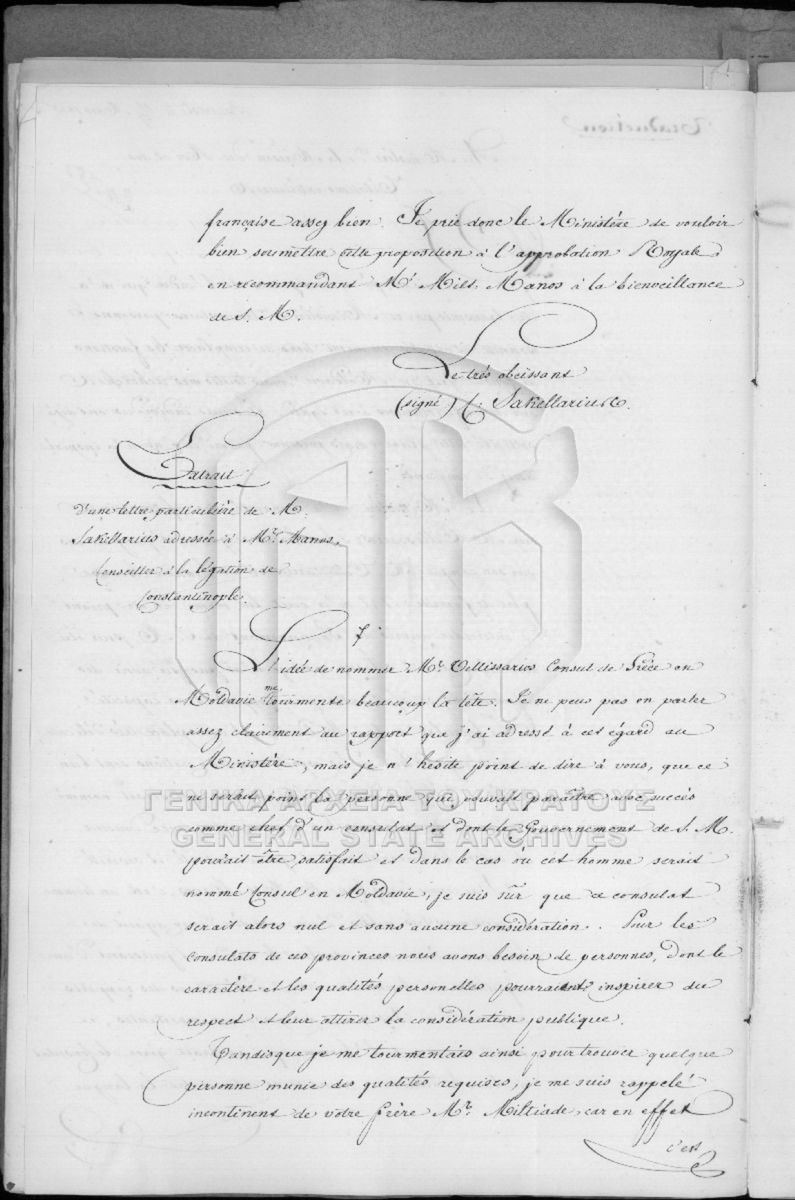 françoise assez bien. Je prie donc le Ministère de vouloir
bien soumettre cette proposition à l'approbation Royale
en recommandant Mr Milt. Manos à la bienveillance
de S. M.
Le très obeissant
(signé) C. Sakellarius
Extrait
d'une lettre particulière de M.
Sakellarius adressée à Mr. Manos.
Conseiller à la légation de
Constantinople.
L'idée de nommer Mr. Vellissarios Consul de Grèce en
Moldavie me tourmente beaucoup la tête. Je ne peus pas en parler
assez clairement au rapport que j'ai adressé à cet égard au
Ministère, mais je n'hésite point de dire à vous, que ce
ne serait point la personne qui pouvait paraître avec succès
comme chef d'un consulat et dont le Gouvernement de S. M.
pourait être satisfait et dans le cas où cet homme serait
nommé Consul en Moldavie, je suis sûr que ce consulat
serait alors nul et sans aucune considération. Pour les
Consulats de ces provinces nous avons besoin de personnes, dont le
caractère et les qualités personelles pourraient inspirer du
respect et leur attirer la considération publique.
Tandisque je me tourmentais ainsi pour trouver quelque
personne munie des qualités requises, je me suis rappelé
incontinent de votre frère Mr. Miltiade, car en effet
c'est
ΓΕΝΙΚΑ ΑΡΧΕΙΑ ΤΟΥ ΚΡΑΤΟΥΣ
GENERAL STATE ARCHIVES
Traduction